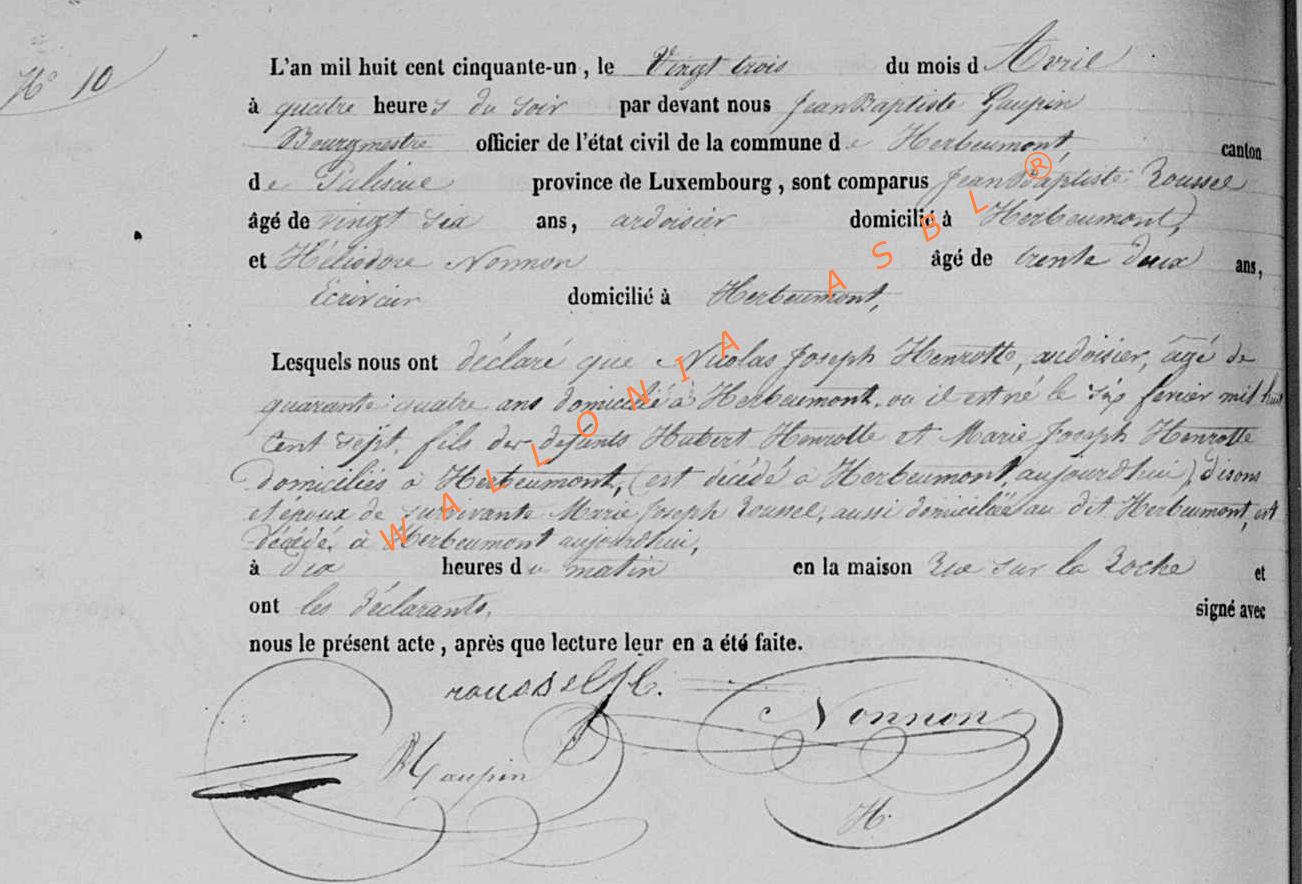 N° 10
L'an mil huit cent cinquante-un, le Vingt trois du mois d Avril
à quatre heures du soir par devant nous Jean Baptiste Gaupin
Bourgmestre officier de l'état civil de la commune de Herbeumont, canton
de Paliseue province de Luxembourg, sont comparus Jean Baptiste Roussel
âgé de vingt six ans, ardoisier domicilié à Herbeumont,
et Héliodore Nonnon âgé de trente deux ans,
Ecrivain domicilié à Herbeumont,
Lesquels nous ont déclaré que Nicolas Joseph Henrotte, ardoisier, âgé de
quarante quatre ans domicilié à Herbeumont, ou il est né le six fevrier mil huit
cent sept, fils des defunts Hubert Henrotte et Marie Joseph Henrotte
domiciliés à Herbeumont, (est décédé à Herbeumont aujourdhui) disons
et époux de survivante Marie Joseph Roussel, aussi domiciliée au dit Herbeumont, est
décédé à Herbeumont aujourdhui,
à dix heures du matin en la maison Rue sur la Roche et
ont les déclarants, signé avec
nous le présent acte, après que lecture leur en a été faite.
roussel J B.
Nonnon
JB Gaupin
H.
WALLONIA ASBL ®